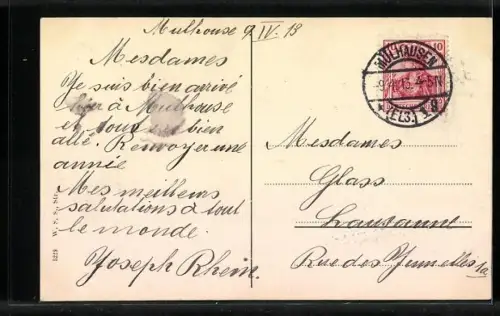 Mulhouse 9 IV. 13
Mesdames
Je suis bien arrivé
hier à Mulhouse
et tout est bien
allé. Renvoyer une
année
Mes meilleurs
salutations à tout
le monde.
Joseph Rhein.
10
MÜLHAUSEN
9.4.13. 4-5N
*(ELS.) 3.g
Mesdames
Glass
Lausanne
Rue des Jumelles 1a
W. S. S. Str.